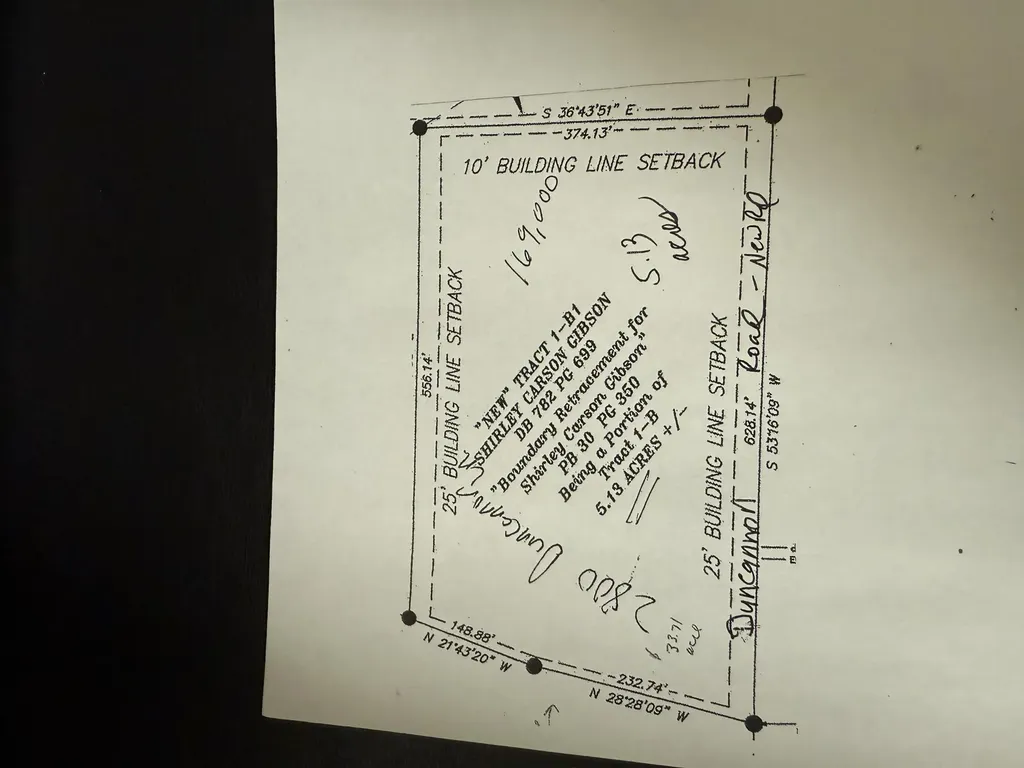 S 36°43'51" E
374.13'
10' BUILDING LINE SETBACK
169,000
5.13
acres
556.14'
25' BUILDING LINE SETBACK
"NEW" TRACT 1-B1
SHIRLEY CARSON GIBSON
DB 782 PG 699
"Boundary Retracement for
Shirley Carson Gibson"
PB 30 PG 350
Being a Portion of
Tract 1-B
5.13 ACRES +/-
25' BUILDING LINE SETBACK
628.14'
S 53°16'09" W
Duncannon Road - New Rd
2800 Duncannon
33.71
acre
148.88'
N 21°43'20" W
232.74'
N 28°28'09" W